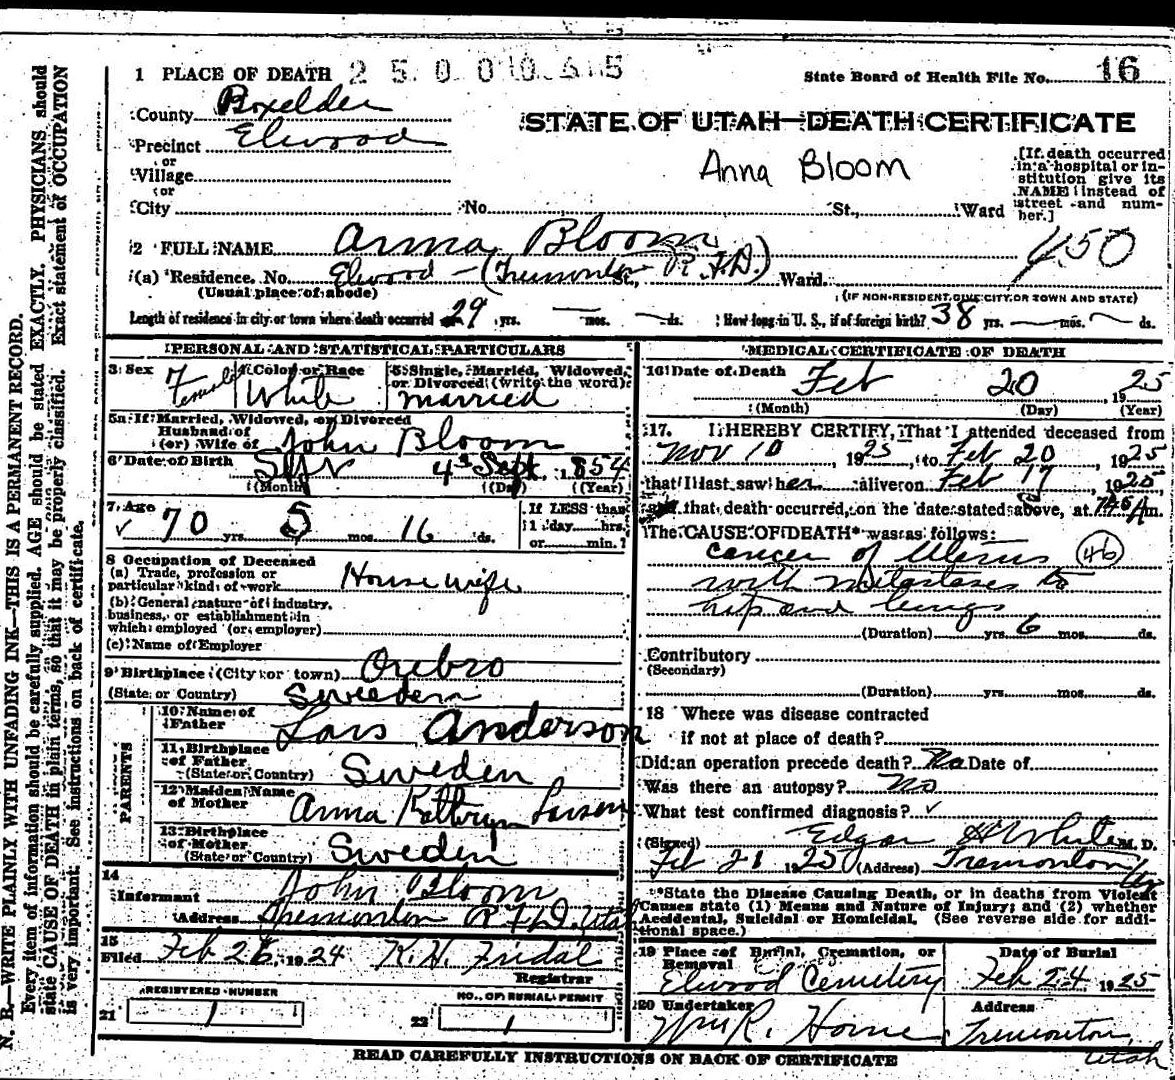 1 PLACE OF DEATH 2 5 0 0 0 6 1 5
State Board of Health File No. 16
County Boxelder
STATE OF UTAH—DEATH CERTIFICATE
Precinct Elwood
or
Village
or
City No. St., Ward
Anna Bloom
[If death occurred in a hospital or institution give its NAME instead of street and number.]
2 FULL NAME Anna Bloom
450
(a) Residence. No. Elwood — (Tremonton R.F.D.) St., Ward.
(Usual place of abode)
(IF NON-RESIDENT GIVE CITY OR TOWN AND STATE)
Length of residence in city or town where death occurred 29 yrs. — mos. — ds. How long in U. S., if of foreign birth? 38 yrs. — mos. — ds.
PERSONAL AND STATISTICAL PARTICULARS
3 Sex Female
4 Color or Race White
5 Single, Married, Widowed, or Divorced (write the word) married
5a If Married, Widowed, or Divorced
Husband of
(or) Wife of John Bloom
6 Date of Birth 4 Sept. 1854
(Month) (Day) (Year)
7 Age 70 yrs. 5 mos. 16 ds.
If LESS than
1 day hrs.
or min.?
8 Occupation of Deceased
(a) Trade, profession or
particular kind of work House wife
(b) General nature of industry,
business, or establishment in
which employed (or employer)
(c) Name of Employer
9 Birthplace (City or town) Orebro
(State or Country) Sweden
PARENTS
10 Name of
Father Lars Anderson
11 Birthplace
of Father
(State or Country) Sweden
12 Maiden Name
of Mother Anna Kathryn Larson
13 Birthplace
of Mother
(State or Country) Sweden
14
Informant John Bloom
Address Tremonton R.F.D. Utah
15
Filed Feb 26, 1924 K. H. Fridal
Registrar
REGISTERED NUMBER
21 1
NO. OF BURIAL PERMIT
22 1
MEDICAL CERTIFICATE OF DEATH
16 Date of Death Feb 20 1925
(Month) (Day) (Year)
17. I HEREBY CERTIFY, That I attended deceased from
Nov 10, 1925, to Feb 20, 1925
that I last saw her alive on Feb 17, 1925,
and that death occurred, on the date stated above, at m.
The CAUSE OF DEATH* was as follows:
cancer of Uterus (46)
with metastases to
hip and lungs
(Duration) yrs. 6 mos. ds.
Contributory
(Secondary)
(Duration) yrs. mos. ds.
18 Where was disease contracted
if not at place of death?
Did an operation precede death? No Date of
Was there an autopsy? no
What test confirmed diagnosis? ✓
(Signed) Edgar H White M. D.
Feb 21 1925 (Address) Tremonton Ut
*State the Disease Causing Death, or in deaths from Violent
Causes state (1) Means and Nature of Injury; and (2) whether
Accidental, Suicidal or Homicidal. (See reverse side for addi-
tional space.)
19 Place of Burial, Cremation, or
Removal
Elwood Cemetery
Date of Burial
Feb 24 1925
20 Undertaker
Wm R. Horne
Address
Tremonton,
Utah
READ CAREFULLY INSTRUCTIONS ON BACK OF CERTIFICATE
N. B.—WRITE PLAINLY WITH UNFADING INK—THIS IS A PERMANENT RECORD.
Every item of information should be carefully supplied. AGE should be stated EXACTLY. PHYSICIANS should
state CAUSE OF DEATH in plain terms, so that it may be properly classified. Exact statement of OCCUPATION
is very important. See instructions on back of certificate.